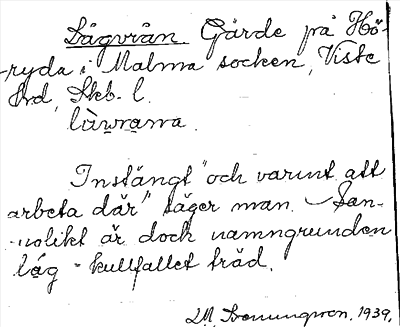 Lågvrån Gärde på Hö-
-ryda i Malma socken, Viste
hrd, Skb. l.
lùwrana.
Instängt "och varmt att
arbeta där" säger man. San-
-nolikt är dock namngrunden
låg - kullfallet träd.
1939.